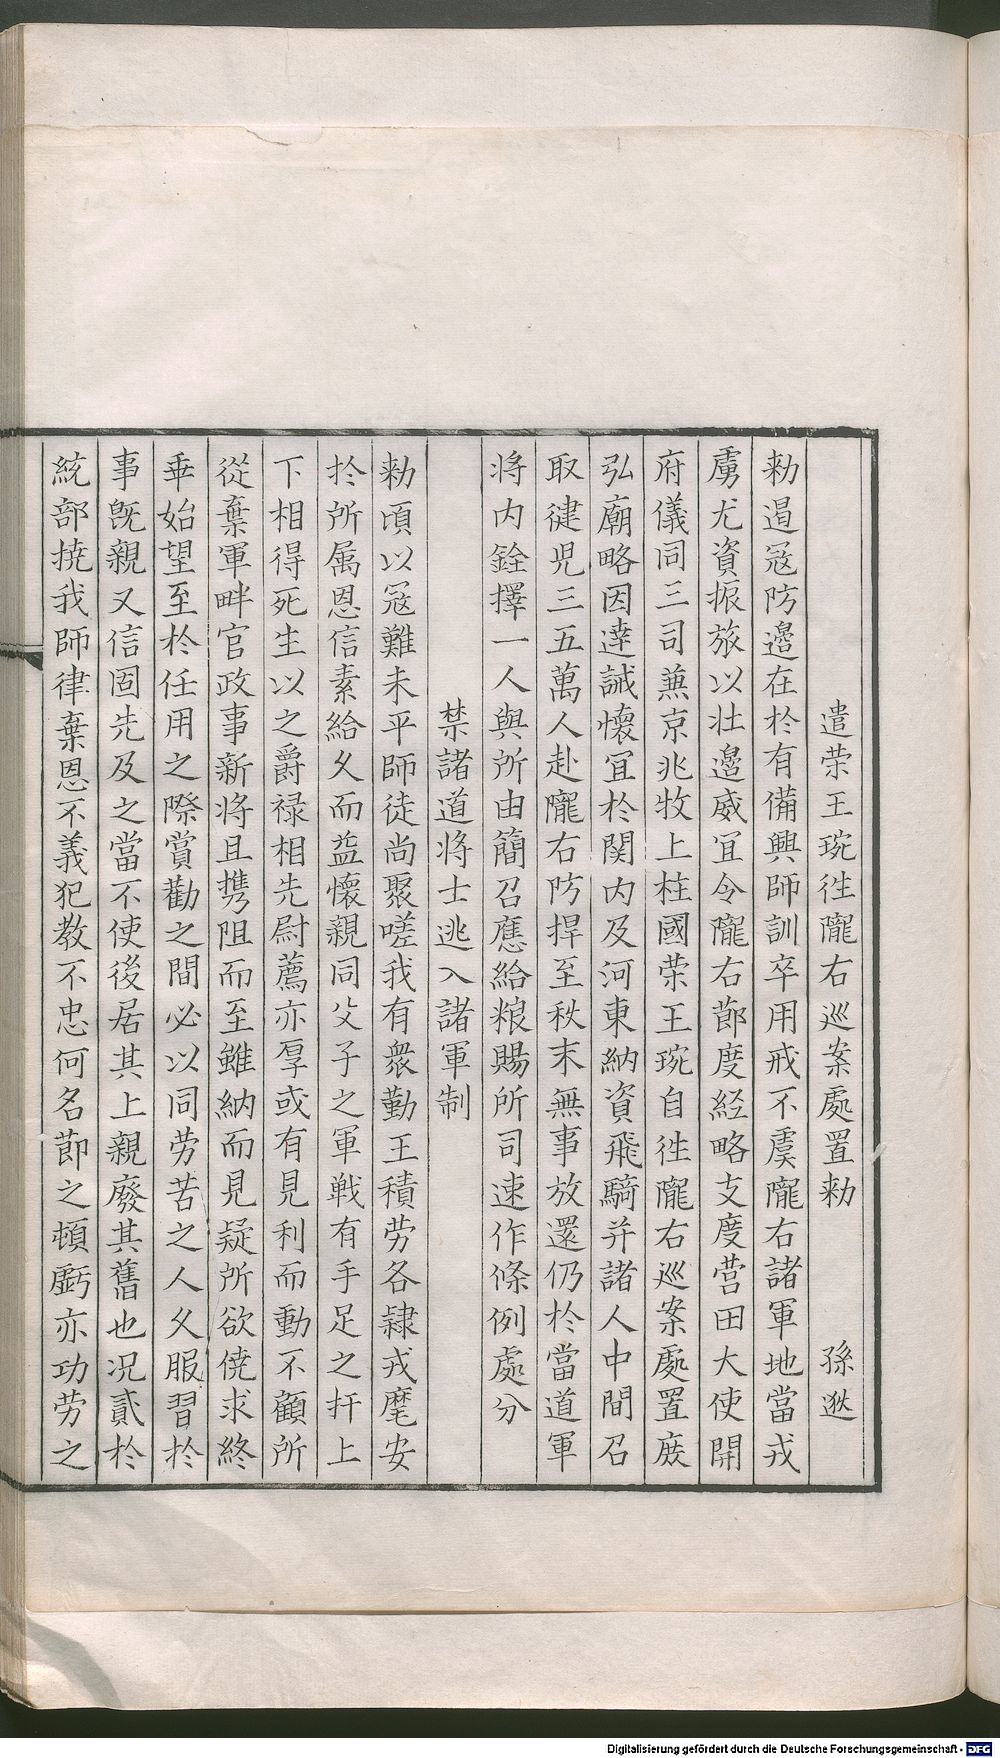 遣荣王琬徃隴右巡案處置勑　　孫逖
勑遏冦防邉在於有備興師訓卒用戒不虞隴右諸軍地當戎
虜尤資振旅以壮邉威冝令隴右莭度経略支度营田大使開
府儀同三司兼京兆牧上柱國荣王琬自徃隴右巡案處置庻
弘廟略因逹誠懷冝於関内及河東納資飛騎并諸人中間召
取健児三五萬人赴隴右防捍至秋末無事放還仍於當道軍
将内銓擇一人與所由簡召應給粮賜所司速作條例處分
禁諸道将士逃入諸軍制
勑頃以冦難未平師徒尚聚嗟我有衆勤王積劳各隷戎麾安
扵所属恩信素給久而益懷親同父子之軍戦有手足之扞上
下相得死生以之爵禄相先尉薦亦厚或有見利而動不顧所
從棄軍畔官政事新将且携阻而至雖納而見疑所欲侥求終
乖始望至於任用之際賞勸之間必以同劳苦之人久服習於
事既親又信固先及之當不使後居其上親廢其舊也况貳於
統部撓我師律棄恩不義犯教不忠何名莭之頓虧亦功劳之
Digitalisierung gefördert durch die Deutsche Forschungsgemeinschaft - DFG